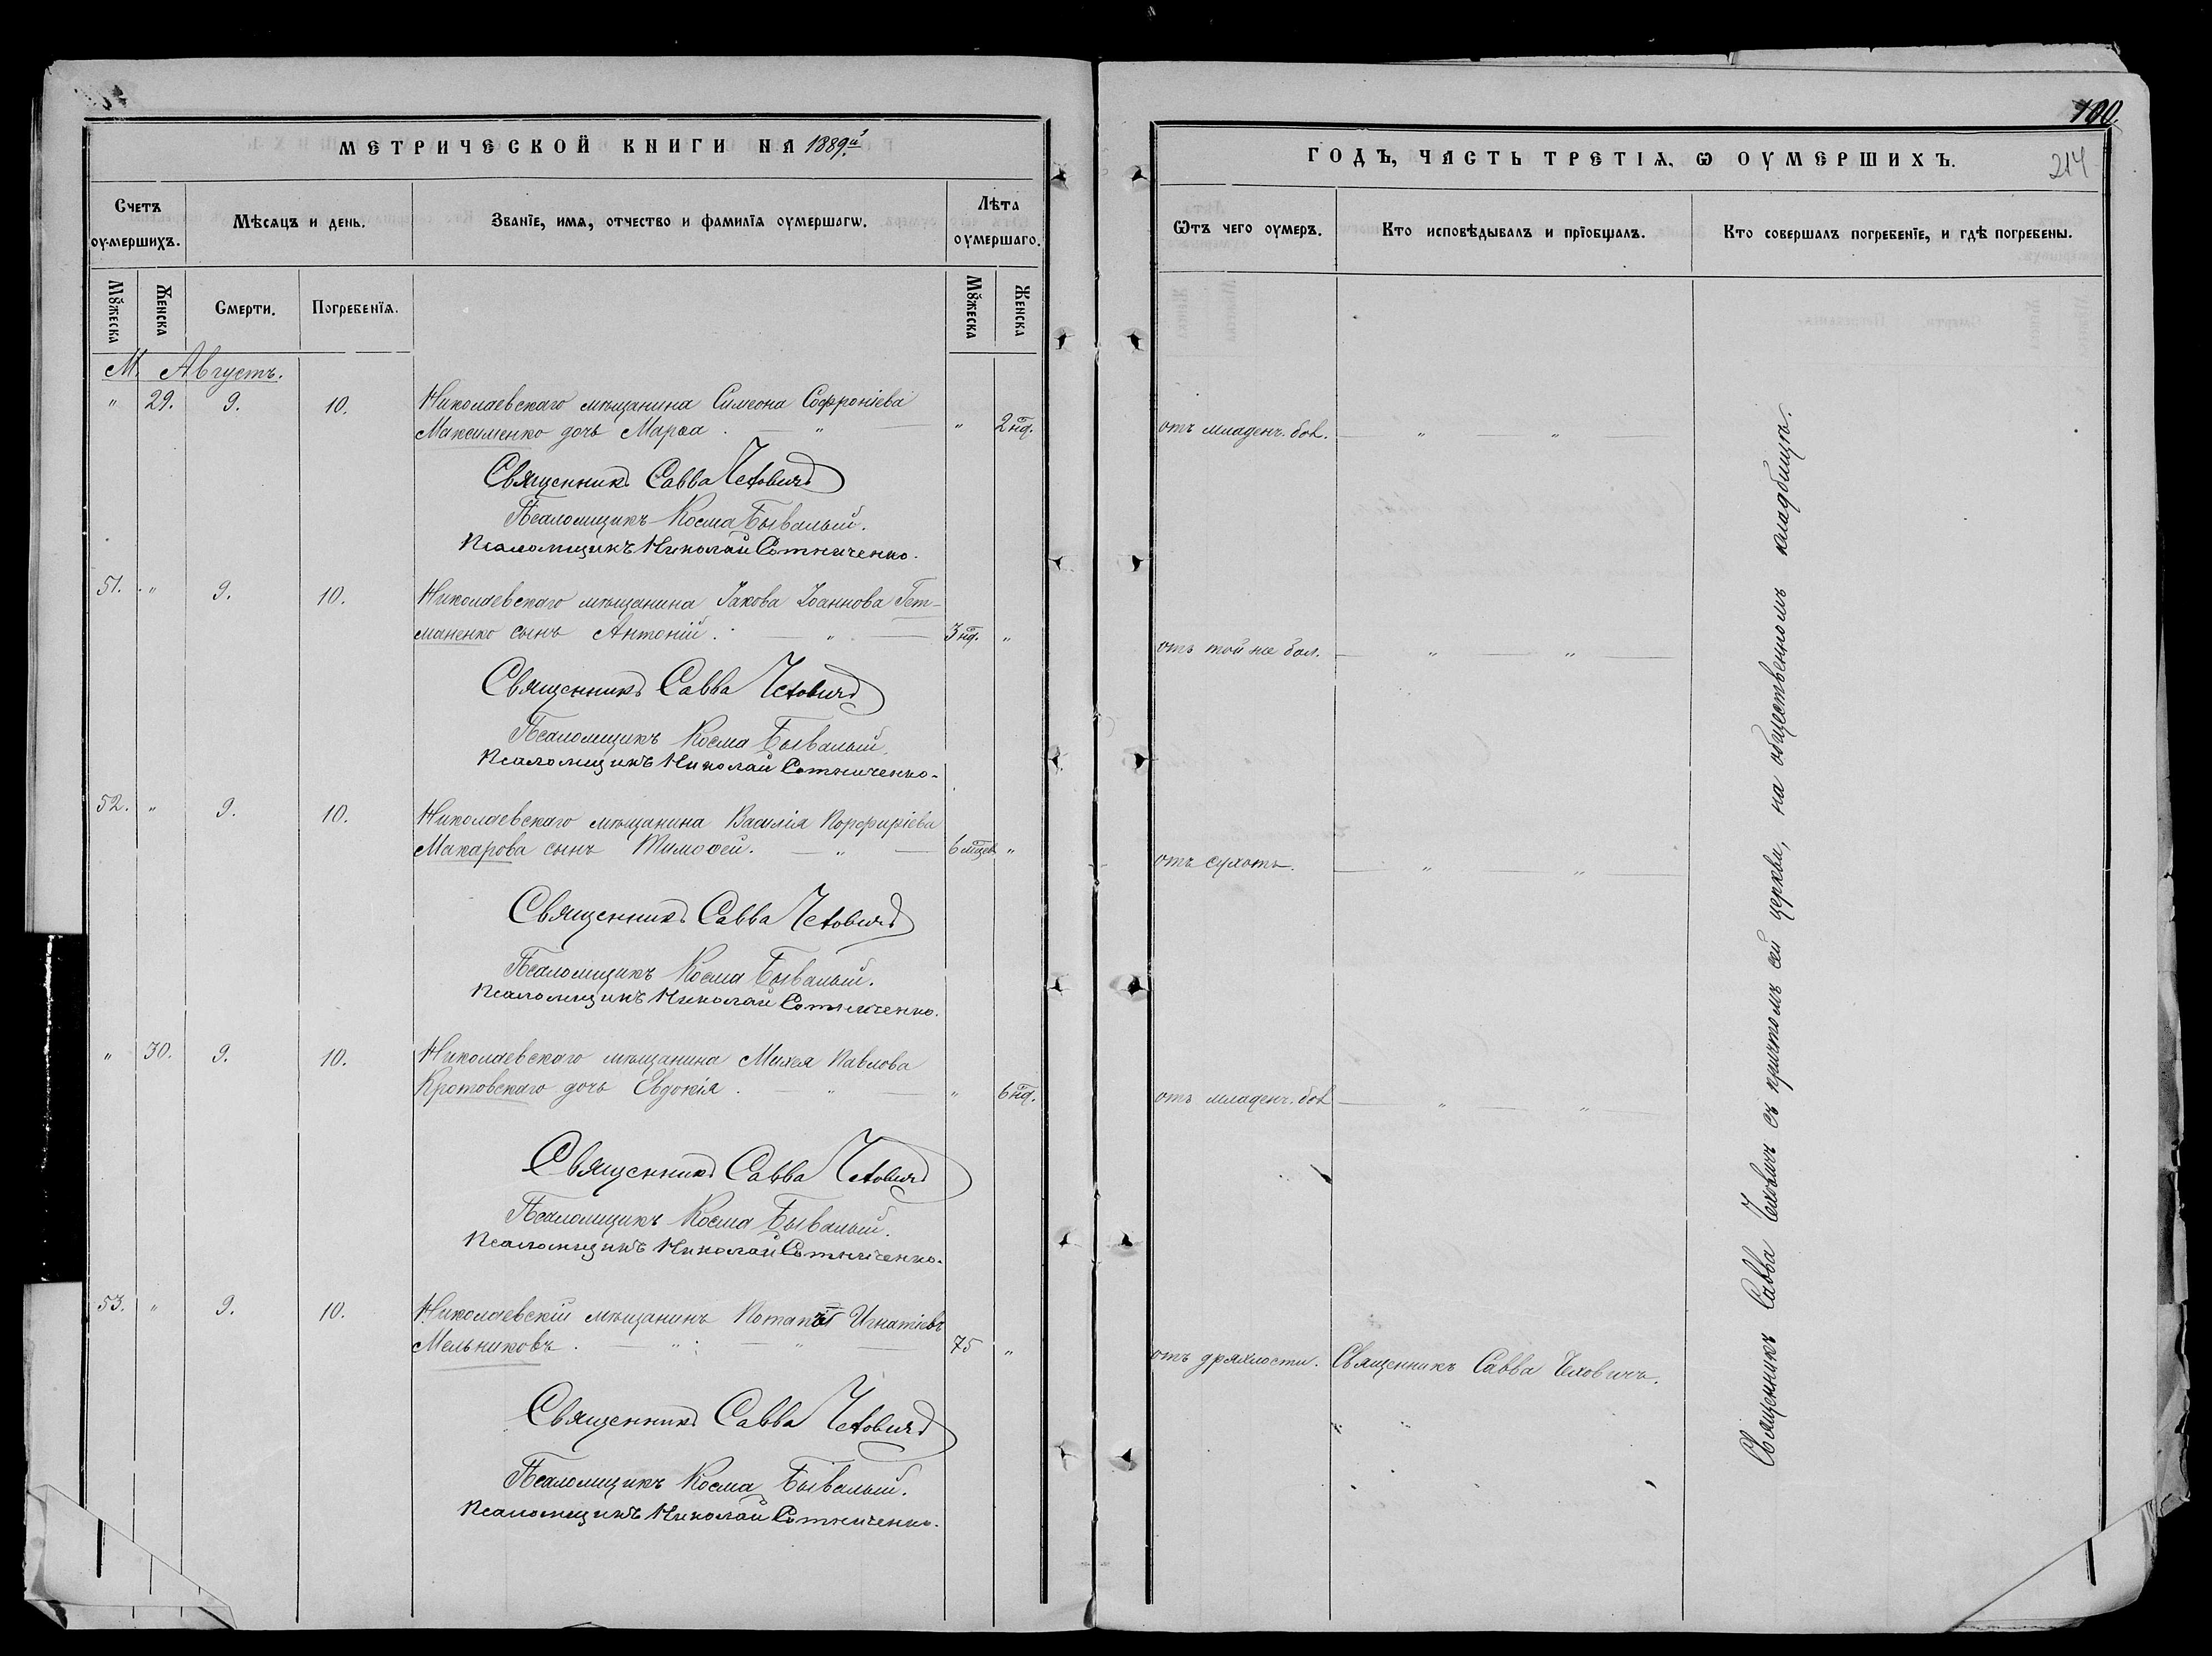 МЕТРИЧЕСКОЙ КНИГИ НА 1889й
Счетъ оумершихъ.
Мѣсяцъ и день.
Званїе, имя, отчество и фамилїя оумершагω.
Лѣта оумершаго.
Мꙋжеска
Женска
Смерти.
Погребенїя.
Мꙋжеска
Женска
М. Августъ.
" 29. 9. 10. Николаевскаго мѣщанина Симеона Софроніева
Максименко дочь Марѳа. — " — " 2 нд.
Священникъ Савва Чеховичъ
Псаломщикъ Косма Бывалый.
Псаломщикъ Николай Сотниченко.
51. " 9. 10. Николаевскаго мѣщанина Іакова Іоаннова Гет-
маненко сынъ Антоній. — " — 3 нд. "
Священникъ Савва Чеховичъ
Псаломщикъ Косма Бывалый.
Псаломщикъ Николай Сотниченко.
52. " 9. 10. Николаевскаго мѣщанина Василія Порфиріева
Макарова сынъ Тимоѳей. — " — 6 мцев "
Священникъ Савва Чеховичъ
Псаломщикъ Косма Бывалый.
Псаломщикъ Николай Сотниченко.
" 30. 9. 10. Николаевскаго мѣщанина Михея Павлова
Кротовскаго дочь Евдокія. — " — " 6 нд.
Священникъ Савва Чеховичъ
Псаломщикъ Косма Бывалый.
Псаломщикъ Николай Сотниченко.
53. " 9. 10. Николаевскій мѣщанинъ Потапій Игнатіевъ
Мельниковъ. — " — " — 75 "
Священникъ Савва Чеховичъ
Псаломщикъ Косма Бывалый.
Псаломщикъ Николай Сотниченко.
100.
ГОДЪ, ЧАСТЬ ТРЕТІЯ, Ѡ ОУМЕРШИХЪ.
214
Ѿтъ чего оумеръ.
Кто исповѣдывалъ и прїобщалъ.
Кто совершалъ погребенїе, и гдѣ погребены.
отъ младенч. бол. — " — " —
отъ той же бол. — " — " —
отъ сухотъ. — " — " —
отъ младенч. бол — " — " —
отъ дряхлости. Священникъ Савва Чеховичъ.
Священникъ Савва Чеховичъ съ причтомъ сей церкви, на общественномъ кладбищѣ.